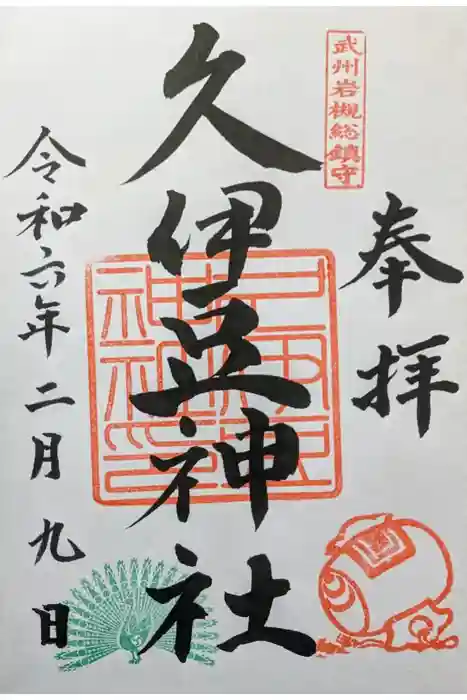 武州岩槻総鎮守
奉拝
久伊豆神社
令和六年二月九日